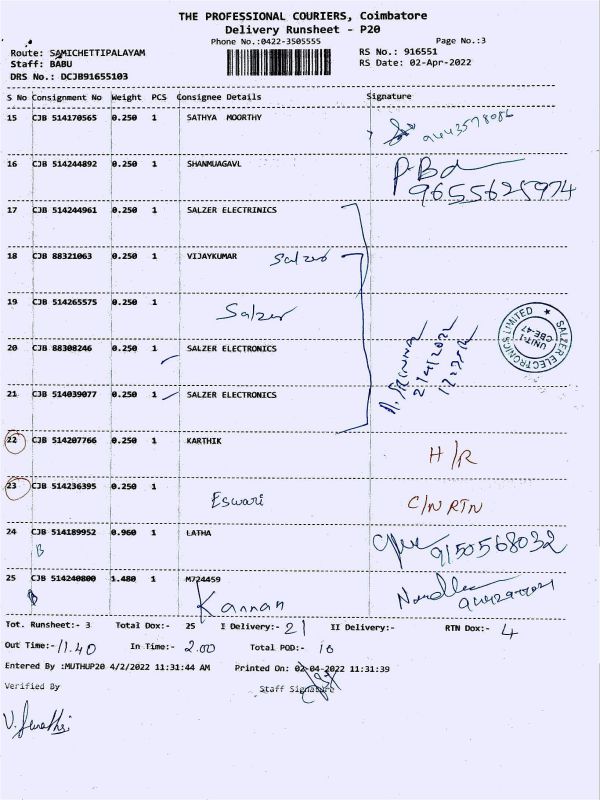 THE PROFESSIONAL COURIERS, Coimbatore
Delivery Runsheet - P20
Phone No.:0422-3505555 Page No.:3
Route: SAMICHETTIPALAYAM RS No.: 916551
Staff: BABU RS Date: 02-Apr-2022
DRS No.: DCJB91655103
S No Consignment No Weight PCS Consignee Details Signature
15 CJB 514170565 0.250 1 SATHYA MOORTHY
16 CJB 514244892 0.250 1 SHANMUAGAVL
9655625974
17 CJB 514244961 0.250 1 SALZER ELECTRINICS
18 CJB 88321063 0.250 1 VIJAYKUMAR Salzer
19 CJB 514265575 0.250 1 Salzer
SALZER ELECTRONICS LIMITED
UNIT-1
CBE-47
20 CJB 88308246 0.250 1 SALZER ELECTRONICS
2/4/2022
21 CJB 514039077 0.250 1 SALZER ELECTRONICS
22 CJB 514207766 0.250 1 KARTHIK H/R
23 CJB 514236395 0.250 1 Eswari C/N RTN
24 CJB 514189952 0.960 1 LATHA 9150568032
B
25 CJB 514240800 1.480 1 M724459
Kannan
Tot. Runsheet:- 3 Total Dox:- 25 I Delivery:- 21 II Delivery:- RTN Dox:- 4
Out Time:- 11.40 In Time:- 2.00 Total POD:- 16
Entered By :MUTHUP20 4/2/2022 11:31:44 AM Printed On: 02-04-2022 11:31:39
Verified By Staff Signature